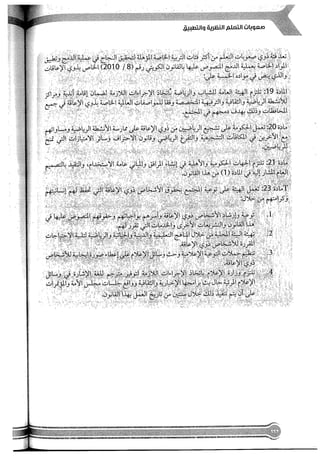 صعوبات التعلم النظرية والتطبيق
تعد فئة ذوي صعوبات التعلم من أكثر فئات التربية الخاصة المؤهلة لتحقيق النجاح في عملية الدمج وتطبيق
المواد الخاصة بعملية الدمج المنصوص عليها بالقانون الكويتي رقم (8 / 2010) الخاص بذوي الإعاقات
والذي ينص في مواده الخمسة على:
مادة 19: تلتزم الهيئة العامة للشباب والرياضة باتخاذ الإجراءات اللازمة لضمان إقامة أندية ومراكز
للأنشطة الرياضية والثقافية والترفيهية المتخصصة وفقا للمواصفات العالمية الخاصة بذوي الإعاقة في جميع
المحافظات وذلك بهدف دمجهم في المجتمع.
مادة 20: تعمل الحكومة على تشجيع الرياضيين من ذوي الإعاقة على ممارسة الأنشطة الرياضية ومساواتهم
مع الآخرين في المكافآت التشجيعية والتفرغ الرياضي وقانون الاحتراف وسائر الامتيازات التي تمنح
للرياضيين.
مادة 21: تلتزم الجهات الحكومية والأهلية في إنشاء المرافق والمباني عامة الاستخدام، والتقيد بالتصميم
العام المشار إليه في المادة (1) من هذا القانون.
مادة 23: تعمل الهيئة على توعية المجتمع بحقوق الأشخاص ذوي الإعاقة التي تحفظ لهم إنسانيتهم
وكرامتهم من خلال:
1. توعية وإرشاد الأشخاص ذوي الإعاقة وأسرهم بواجباتهم وحقوقهم المنصوص عليها في
هذا القانون والتشريعات الأخرى والخدمات التي تقرر لهم.
2. تهيئة البيئة المحلية من خلال المناهج التعليمية والدينية والحياتية والرياضية لتلبية الاحتياجات
المقررة للأشخاص ذوي الإعاقة.
3. تنظيم حملات التوعية الإعلامية وحث وسائل الإعلام على إعطاء صور إيجابية للأشخاص
ذوي الإعاقة.
4. تلتزم وزارة الإعلام باتخاذ الإجراءات اللازمة لتوفير مترجم للغة الإشارة في وسائل
الإعلام المرئية حال بث برامجها الإخبارية والثقافية ووقائع جلسات مجلس الأمة والمؤتمرات
على أن يتم تنفيذ ذلك خلال سنتين من تاريخ العمل بهذا القانون.